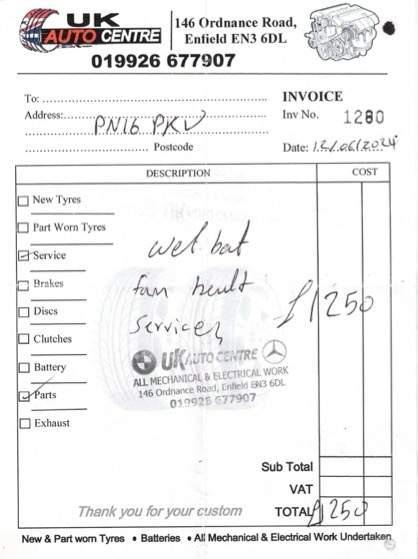 UK
AUTO CENTRE
146 Ordnance Road,
Enfield EN3 6DL
019926 677907
To:
INVOICE
Address:
PN16 PKV
Inv No. 1280
Postcode
Date: 12/06/2024
DESCRIPTION
COST
New Tyres
Part Worn Tyres
Service
Brakes
Discs
Clutches
Battery
Parts
Exhaust
wet bat
fan beult
Services
£1250
UK AUTO CENTRE
ALL MECHANICAL & ELECTRICAL WORK
146 Ordnance Road, Enfield EN3 6DL
019926 677907
Sub Total
VAT
Thank you for your custom
TOTAL £1250
New & Part worn Tyres • Batteries • All Mechanical & Electrical Work Undertaken